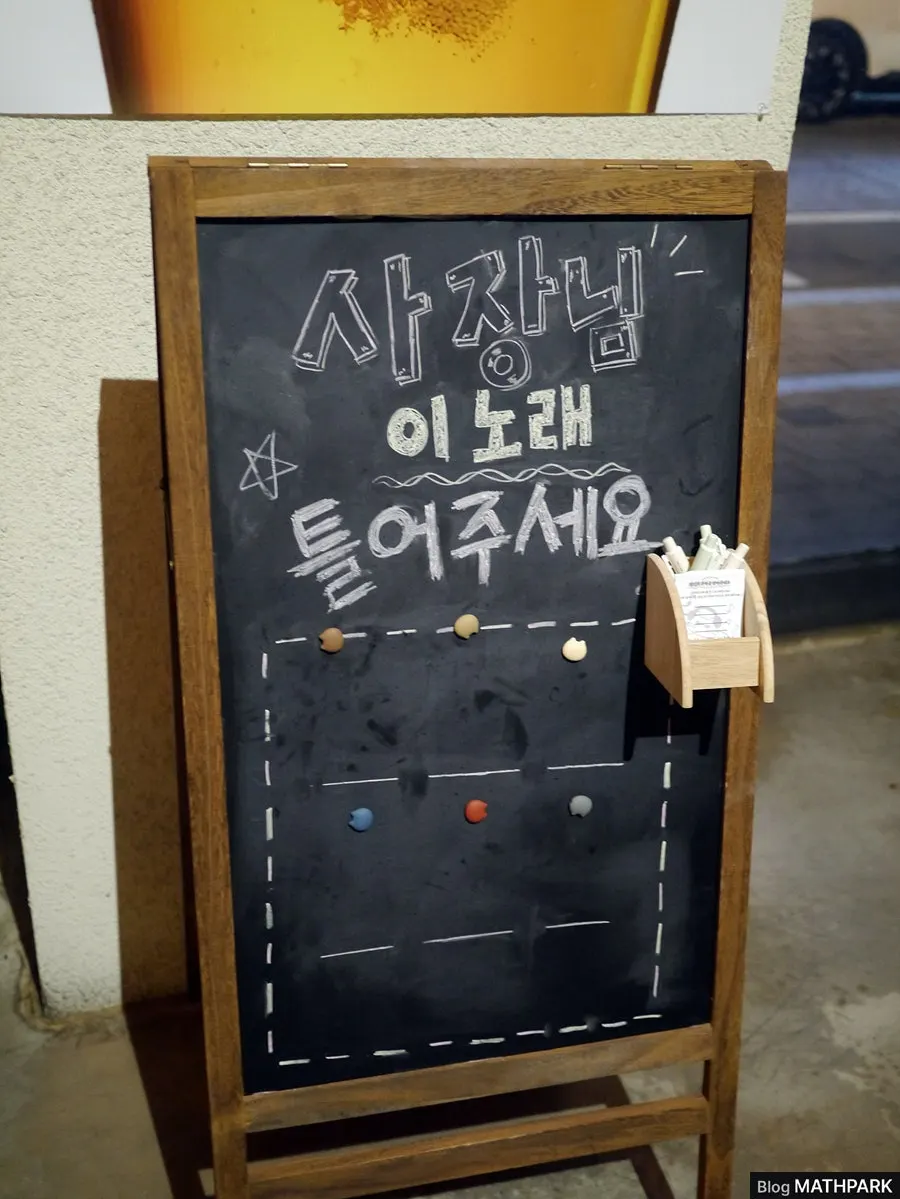 사장님
이 노래
틀어주세요
Blog MATHPARK